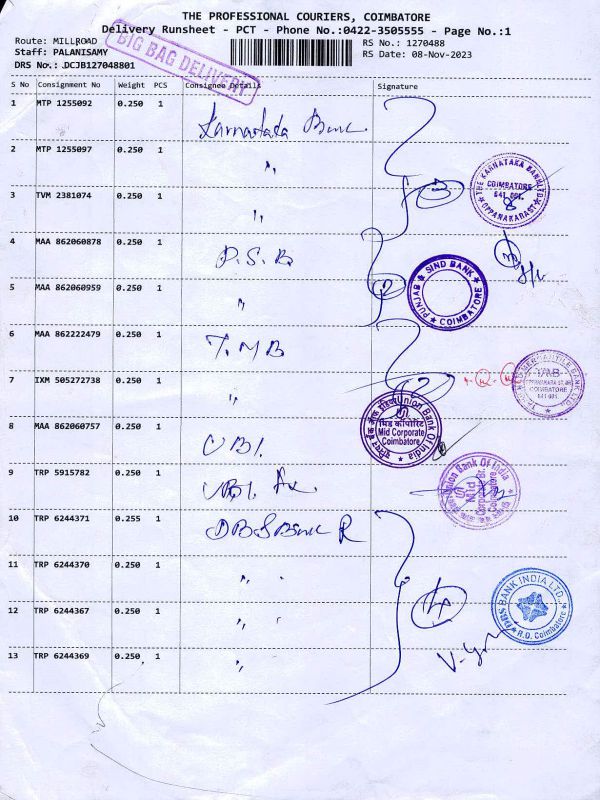 THE PROFESSIONAL COURIERS, COIMBATORE
Delivery Runsheet - PCT - Phone No.:0422-3505555 - Page No.:1
Route: MILLROAD
RS No.: 1270488
Staff: PALANISAMY
RS Date: 08-Nov-2023
DRS No.: .DCJB127048801
BIG BAG DELIVERY
S No Consignment No Weight PCS Consignee Details Signature
1 MTP 1255092 0.250 1 Karnataka Bank
2 MTP 1255097 0.250 1 "
3 TVM 2381074 0.250 1 "
THE KARNATAKA BANK LTD
COIMBATORE
641 001.
OPPANAKARA ST
4 MAA 862060878 0.250 1 P.S.B
5 MAA 862060959 0.250 1 "
2
PUNJAB & SIND BANK
COIMBATORE
6 MAA 862222479 0.250 1 T.M.B
7 IXM 505272738 0.250 1 "
2
MERCANTILE BANK LTD
TMB
OPPANAKARA ST
COIMBATORE
641 001.
8 MAA 862060757 0.250 1 UBI.
Union Bank Of India
मिड कॉर्पोरेट
Mid Corporate
Coimbatore
9 TRP 5915782 0.250 1 UBI.
Union Bank Of India
Mid
Corporate Br.
Coimbatore
10 TRP 6244371 0.255 1 DBS Bank R
11 TRP 6244370 0.250 1 "
12 TRP 6244367 0.250 1 "
4
DBS BANK INDIA LTD.,
R.O. Coimbatore
13 TRP 6244369 0.250 1 "